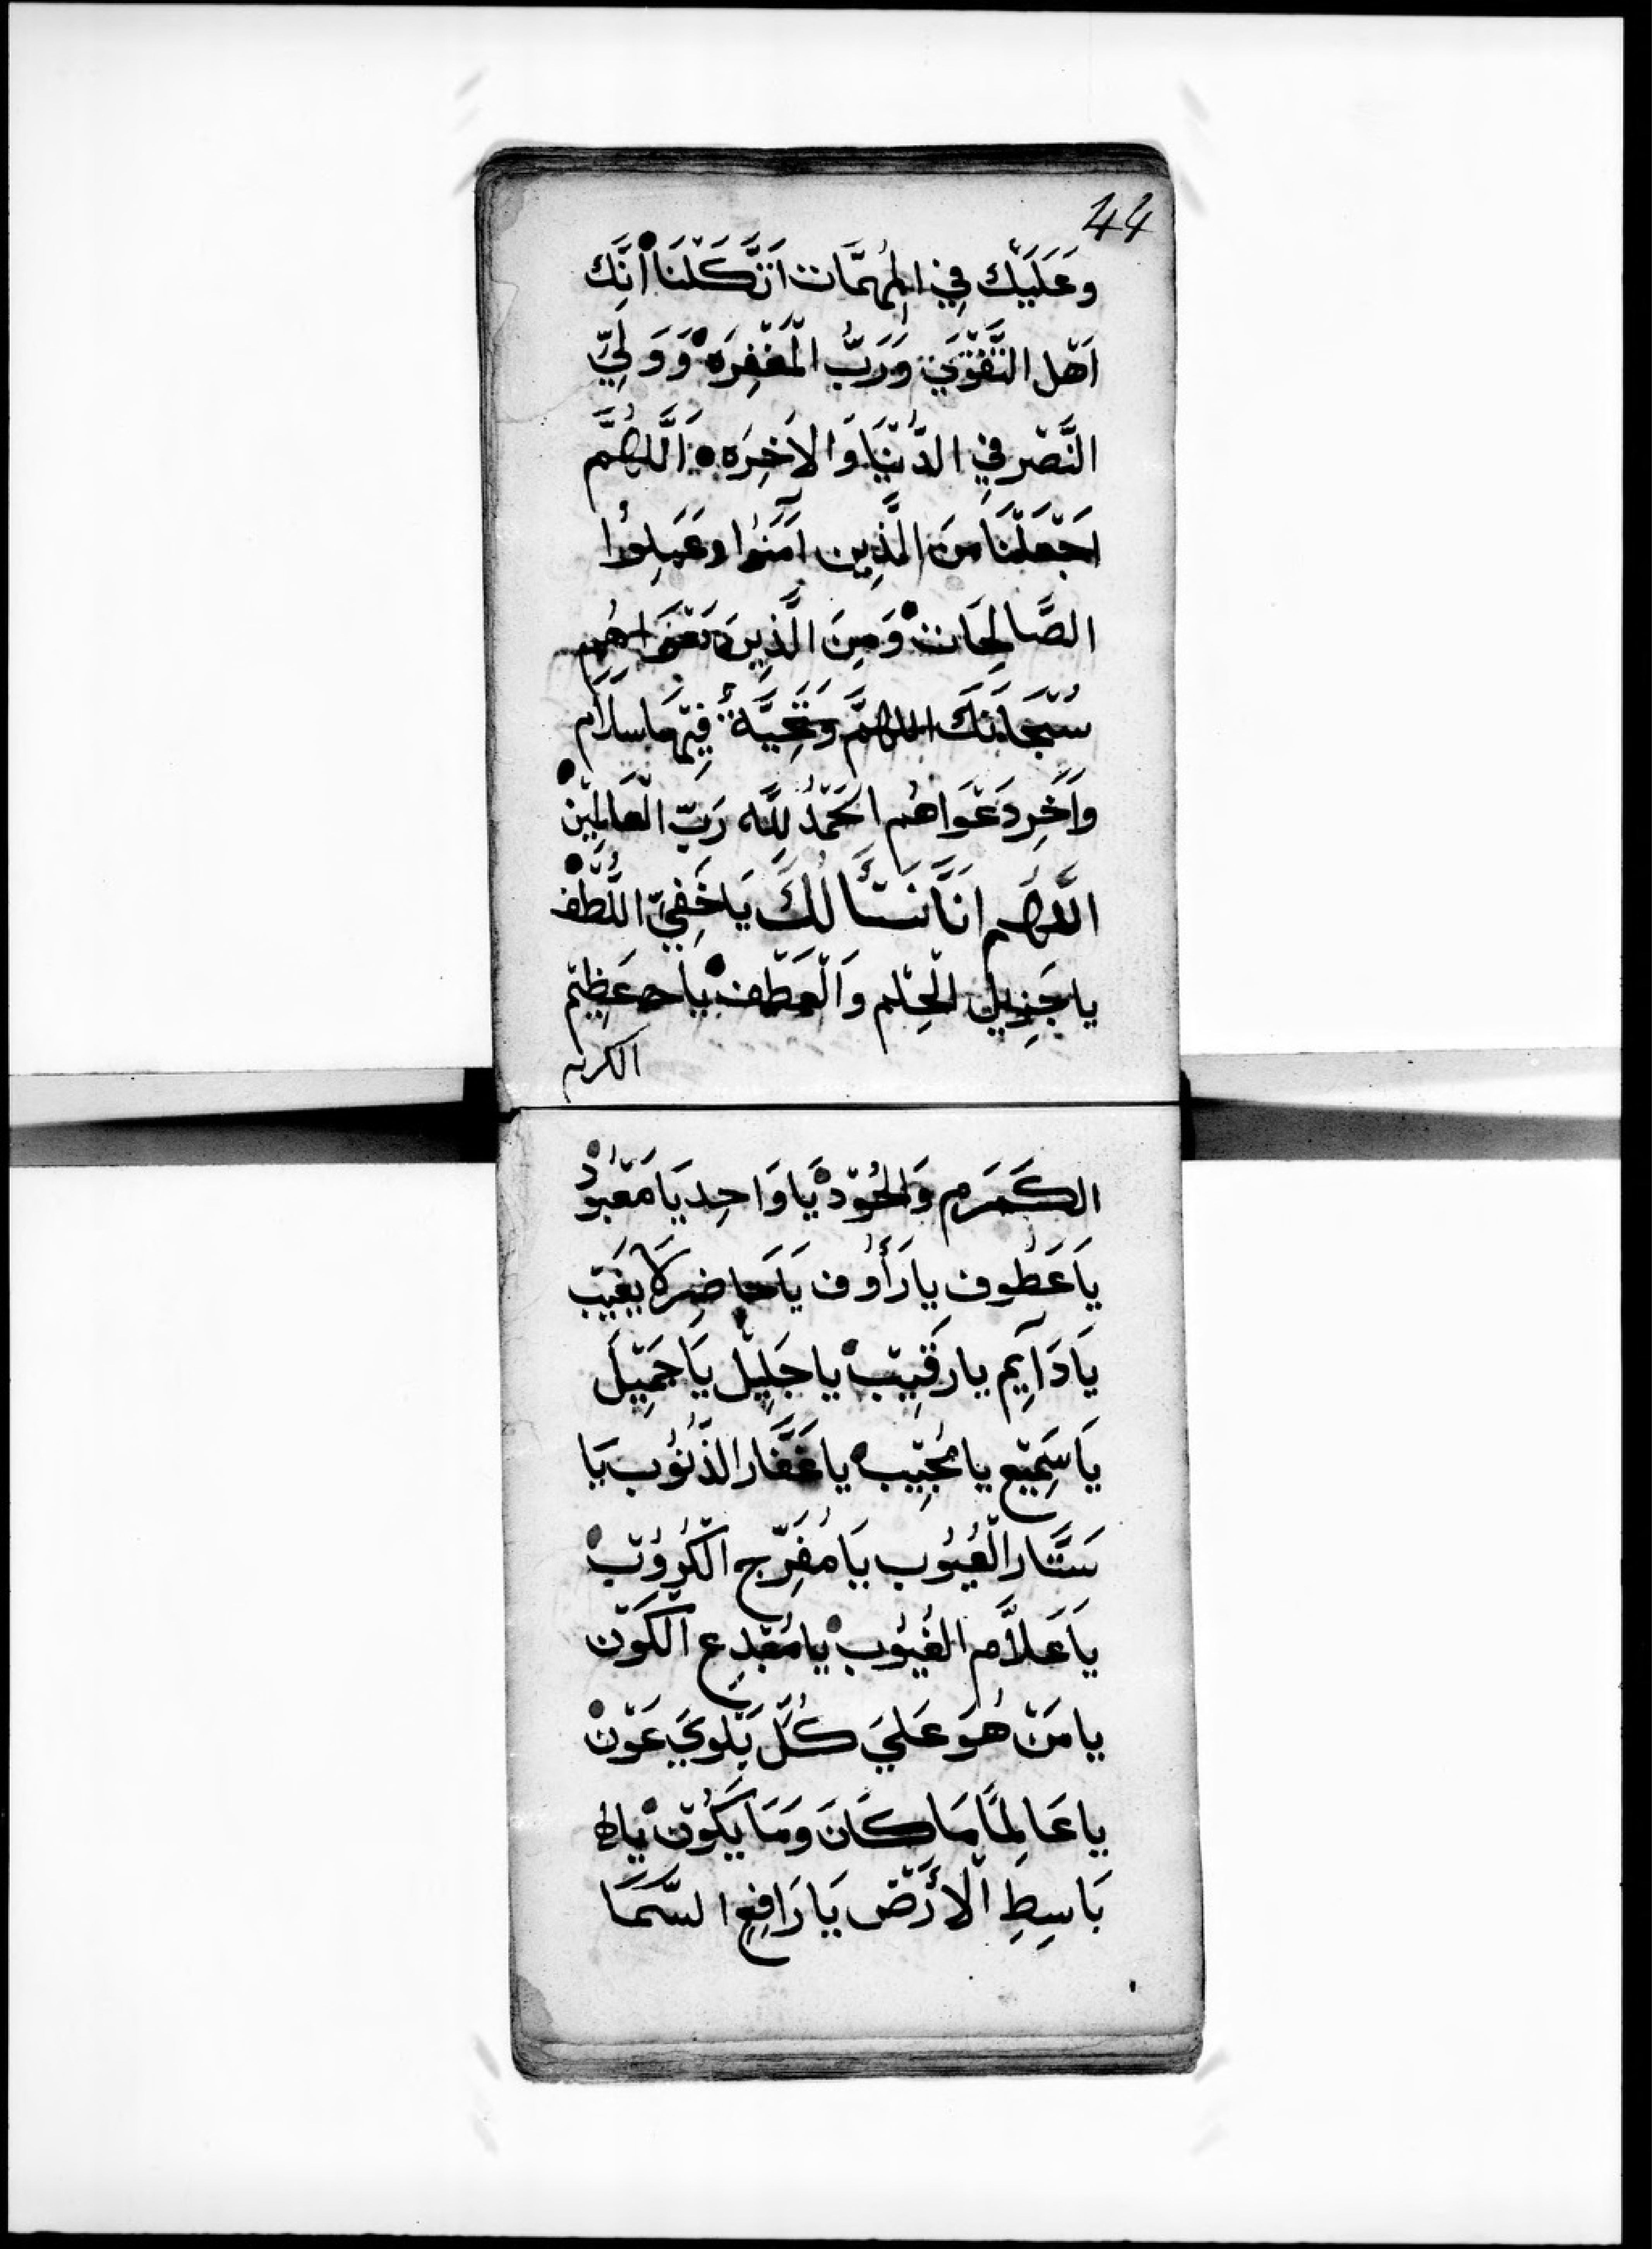 44
وَعَلَيْكَ فِي الْمُهِمَّات اتَّكَلْنَا انَّك
اَهْل التَّقْوَي وَرَبُّ الْمَغْفِرَهْ وَوَلِيّ
النَّصْر فِي الدُّنْيَا وَالاَخِرَه اَللَّهُمَّ
اجْعَلْنَا مِنَ الَّذِين آمَنُوا وعَمِلُوا
الصَّالِحَات وَمِنَ الَّذِينَ دَعْوَاهُم
سُبْحَانَكَ اللهمَّ وَتَحِيَّة فِيْهَا سَلَام
وَآخِر دَعْوَاهُم الحَمْدُ لِلَّه رَبّ الْعَالَمِيْنْ
اللَّهُم انَّا نَسْأَلُكَ يَا خَفِيّ اللُّطْفْ
يا جَزِيل الْحِلْم وَالْعَطْفْ يا عَظِيْم
الكرم
الكَرَم وَالجُوْدْ يَا وَاحِد يَا مَعْبُودْ
يَا عَطُوف يا رَأُوف يَا حَاضِر لَا يغِيْب
يَا دَآيِم يا رَقِيْبْ يا جَلِيْل يَا جَمِيْل
يَا سَمِيْع يا مُجِيْب يا غَفَّار الذُّنُوب يَا
سَتَّار الْعُيُوب يَا مُفَرِّج الْكُرُوبْ
يَا عَلَّام الغُيُوبْ يا مُبْدِع الْكَوْن
يا مَنْ هُوَ عَلَي كُلّ بَلْوَي عَوْنْ
يا عَالِمًا مَا كَانَ وَمَا يَكُوْن يا
بَاسِطِ الْأَرْض يَا رَافِع السَّمَا